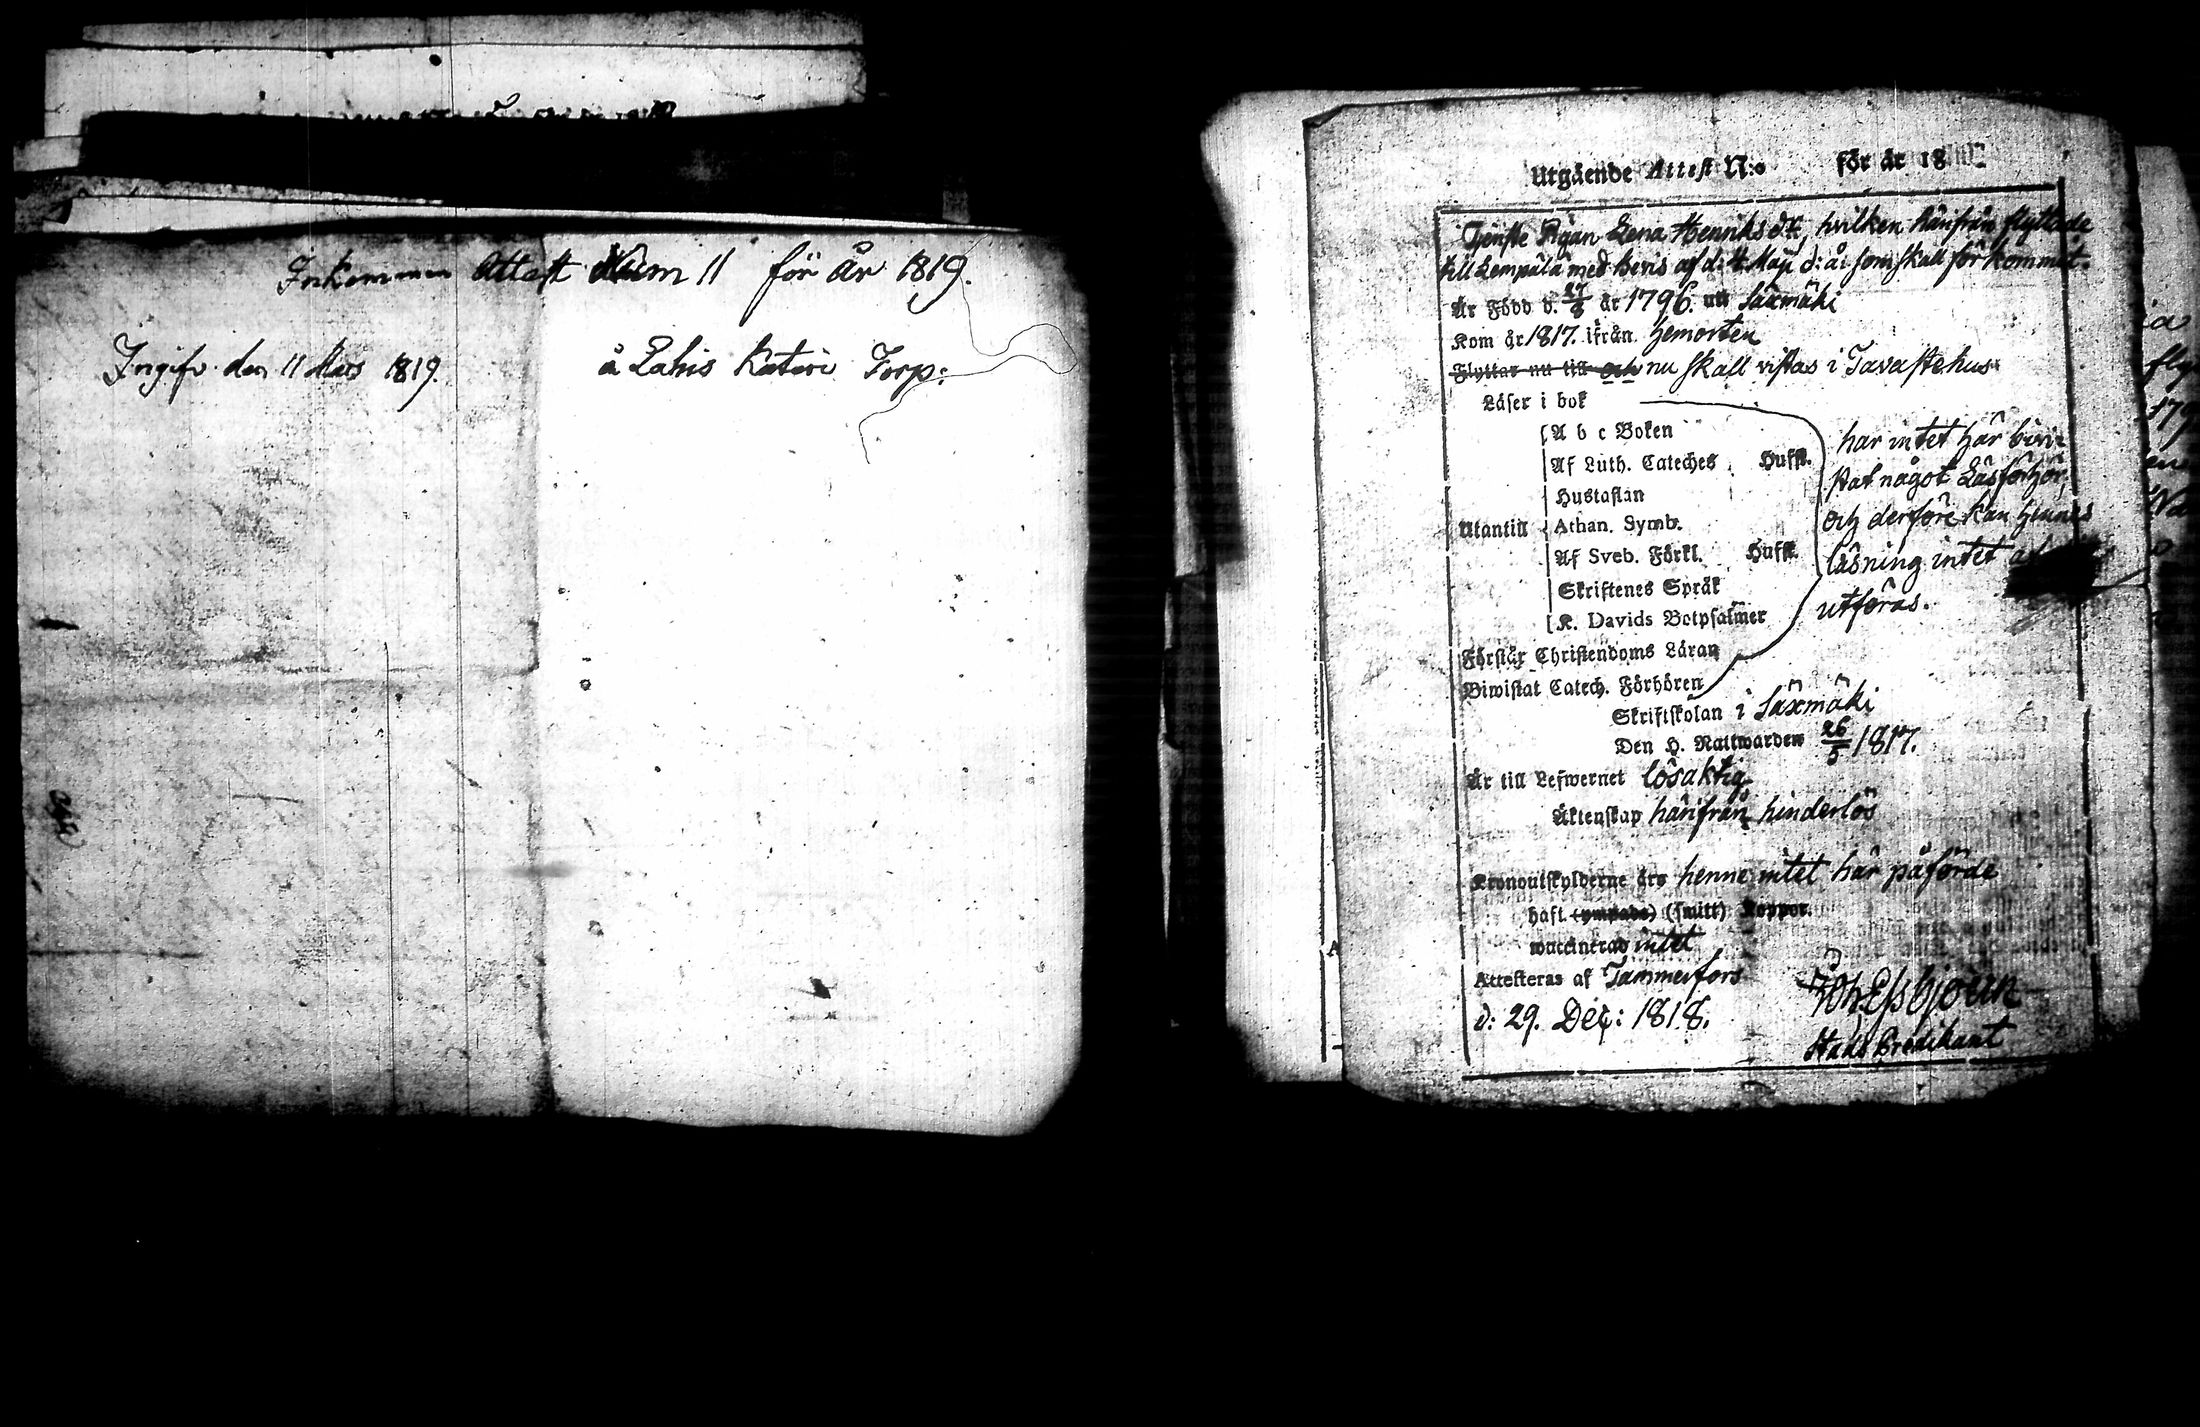 Inkommen Attest Num 11 för År 1819.
Ingifv. den 11 Mars 1819.
å Lahis Katari Torp:
Utgående Attest N:o för år 18
Tjenste Pigan Lena Henriksdr, hvilken härifrån flyttade
till Lempälä med Bevis af d: 4 Maji d: å: som skall förkommit.
Är Född d. 27/8 år 1796. uti Säxmäki
Kom år 1817. ifrån hemorten
Flyttar nu till och nu skall vistas i Tavastehus
Läser i bok
A b c Boken
Af Luth. Cateches Hufst.
Hustaflan
Utantill Athan. Symb.
Af Sveb. Förkl. Hufst.
Skriftenes Språk
K. Davids Botpsalmer
har intet här bivi-
stat något Läsförhör,
och derföre kan hennes
läsning intet
utföras.
Förstår Christendoms Läran
Biwistat Catech. Förhören
Skriftskolan i Säxmäki
Den H. Nattwarden 26/5 1817.
Är till Lefwernet lösaktig
Äktenskap härifrån hinderlös
Kronoutskylderne äro henne intet här påförde
haft (ympade) (smitt) Koppor.
waccinerad intet
Attesteras af Tammerfors
d: 29. Dec: 1818.
Joh Essbjörn
Stads Predikant